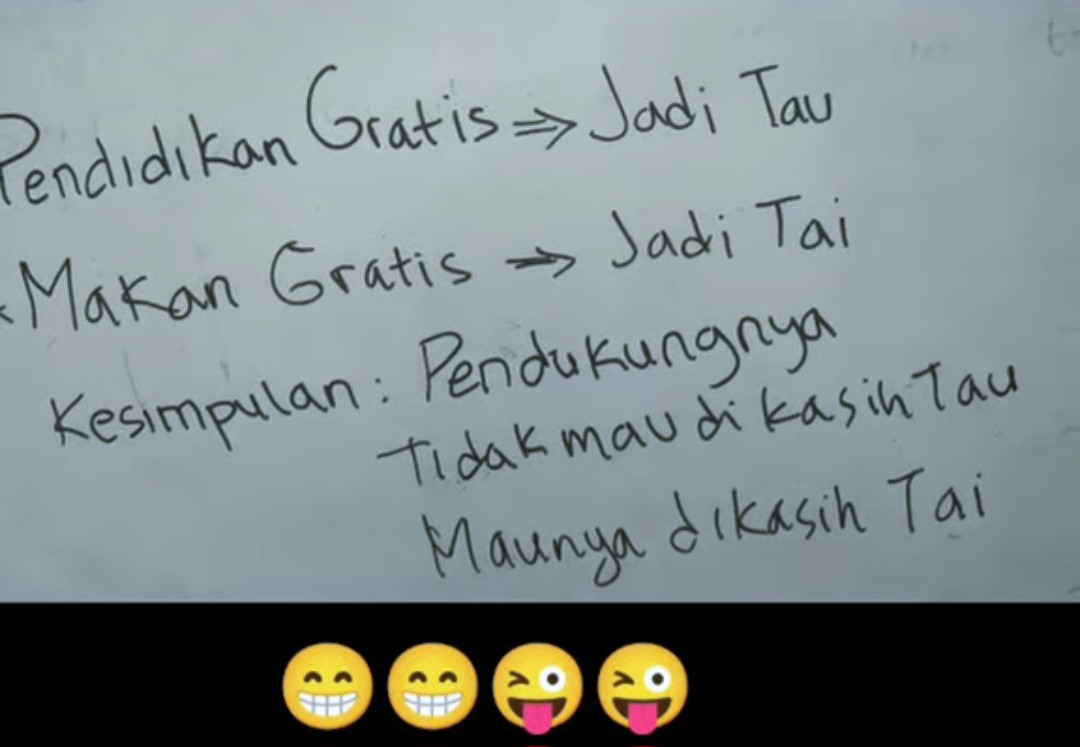 Pendidikan Gratis ⇒ Jadi Tau
Makan Gratis → Jadi Tai
Kesimpulan: Pendukungnya
Tidak mau di kasih Tau
Maunya dikasih Tai
😁😁😜😜